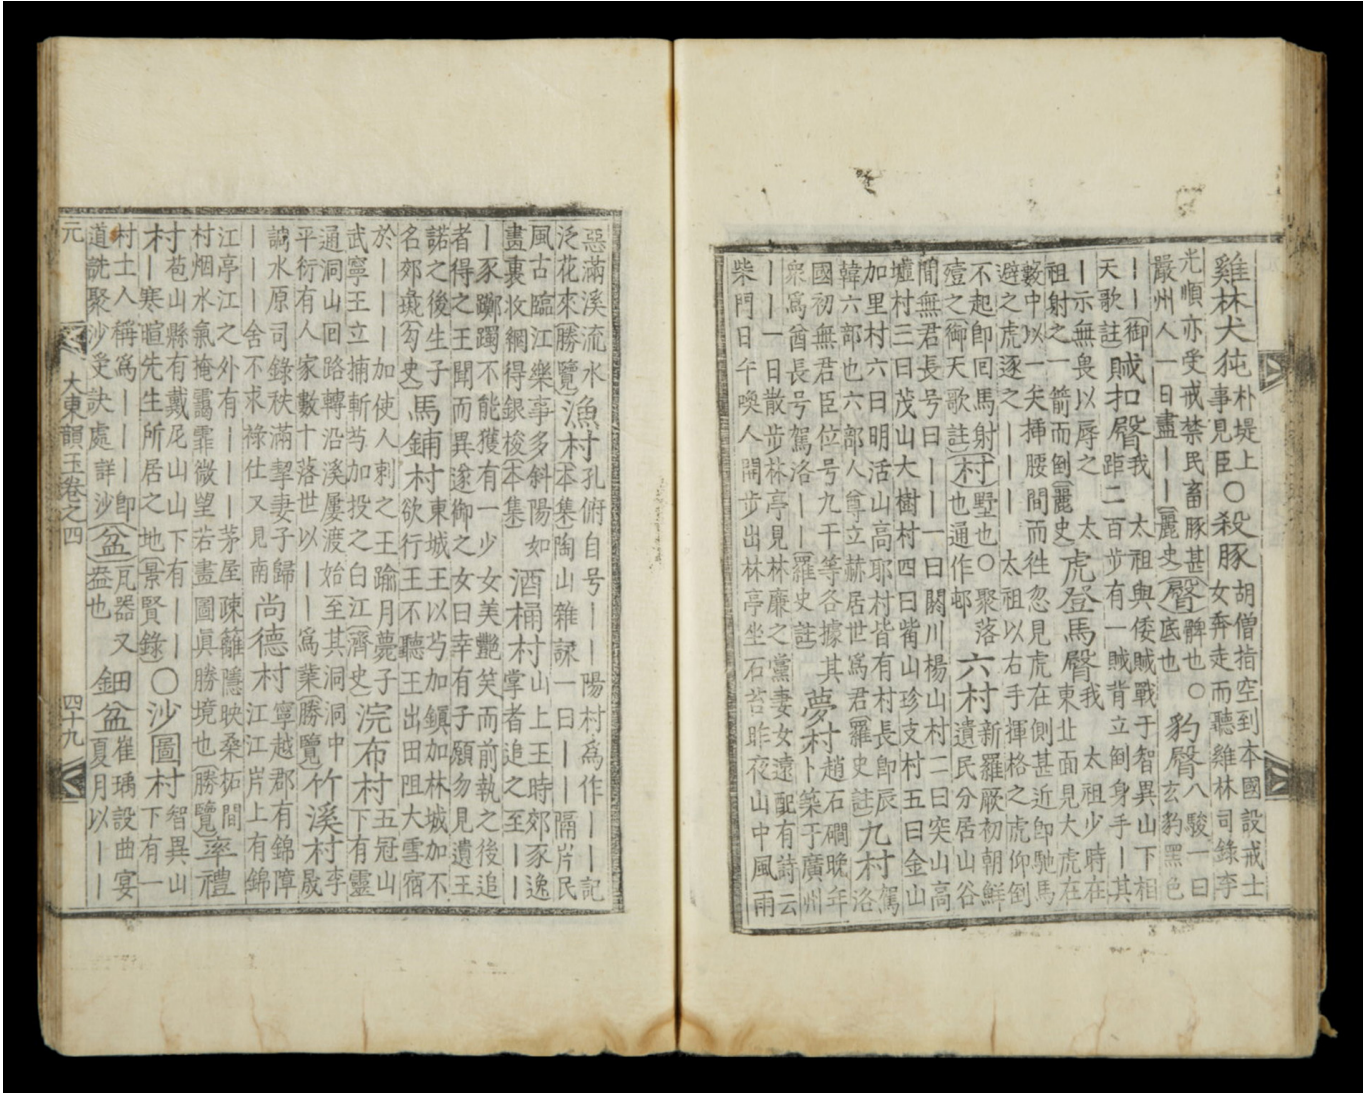 雞林犬㹠 朴堤上事見臣 ○ 殺豚 胡僧指空到本國設戒士女奔走而聽雞林司錄李
光順亦受戒禁民畜豚甚嚴州人一日盡丨丨(麗史) (臀)髀也底也 ○ 豹臀 八駿一曰玄豹黑色
丨丨(御天歌註) 賊扣臀 我 太祖與倭賊戰于智異山下相距二百步有一賊背立倒身手丨其
丨示無畏以辱之 太祖射之一箭而倒(麗史) 虎登馬臀 我 太祖少時在東北面見大虎在
薮中以一矢揷腰間而徃忽見虎在側甚近卽馳馬避之虎逐之丨丨丨 太祖以右手揮格之虎仰倒
不起卽回馬射殪之(御天歌註) (村)墅也○聚落也通作邨 六村 新羅厥初朝鮮遺民分居山谷
間無君長号曰丨丨一曰閼川楊山村二曰突山高墟村三曰茂山大樹村四曰觜山珍支村五曰金山
加里村六曰明活山高耶村皆有村長卽辰韓六部也六部人尊立赫居世爲君(羅史註) 九村 駕洛
國初無君臣位号九干等各據其衆爲酋長号駕洛丨丨(羅史註) 夢村 趙石磵晩年卜築于廣州
丨丨一日散步林亭見林廉之黨妻女遠配有詩云柴門日午喚人開步出林亭坐石苔昨夜山中風雨
惡滿溪流水泛花來(勝覽) 漁村 孔俯自号丨丨陽村爲作丨丨記(本集)陶山雜詠一曰丨丨隔岸民
風古臨江樂事多斜陽如畫裏收網得銀梭(本集) 酒桶村 山上王時郊豕逸掌者追之至丨丨
丨豕躑躅不能獲有一少女美艷笑而前執之後追者得之王聞而異遂御之女曰幸有子願勿見遺王
諾之後生子名郊彘(勾史) 馬鋪村 東城王以芶加鎭加林城加不欲行王不聽王出田阻大雪宿
於丨丨丨加使人刺之王踰月薨子武寧王立捕斬芶加投之白江(濟史) 浣布村 五冠山下有靈
通洞山回路轉沿溪屢渡始至其洞洞中平衍有人家數十落世以丨丨爲業(勝覽) 竹溪村 李晟
謫水原司錄秩滿挈妻子歸丨丨丨舍不求祿仕又見南 尚德村 寧越郡有錦障江江岸上有錦
江亭江之外有丨丨丨茅屋疎籬隱映桑柘間村烟水氣掩靄霏微望若畫圖眞勝境也(勝覽) 率禮
村 苞山縣有戴尼山山下有丨丨丨寒暄先生所居之地(景賢錄) ○ 沙圖村 智異山下有一
村土人稱爲丨丨丨卽道詵聚沙受訣處詳沙 (盆)瓦器又盎也 鈿盆 崔瑀設曲宴夏月以丨丨
元 大東韻玉卷之四 四十九